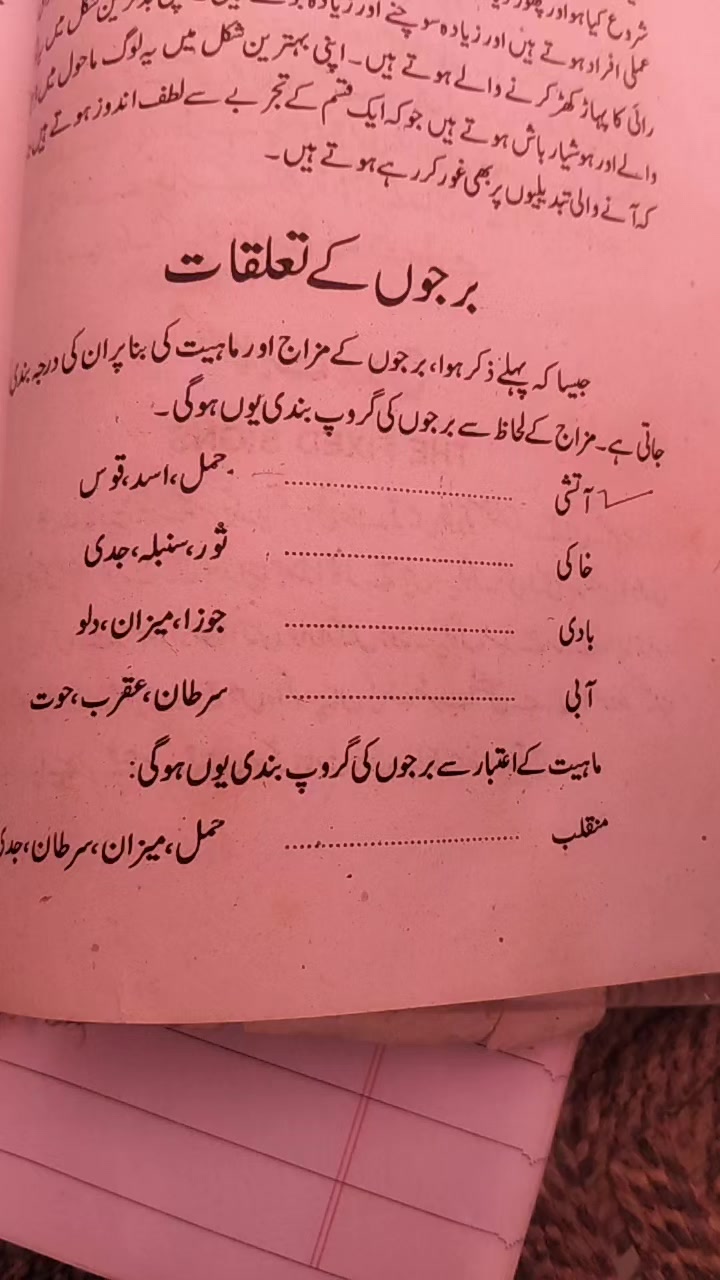 شروع کیا ہو اور
عملی افراد ہوتے ہیں اور زیادہ سوچنے اور زیادہ
رائی کا پہاڑ کھڑ کرنے والے ہوتے ہیں۔ اپنی بہترین شکل میں یہ لوگ ماحول میں
والے اور ہوشیار باش ہوتے ہیں جو کہ ایک قسم کے تجربے سے لطف اندوز ہوتے ہیں
کہ آنے والی تبدیلیوں پر بھی غور کر رہے ہوتے ہیں۔
برجوں کے تعلقات
جیسا کہ پہلے ذکر ہوا، برجوں کے مزاج اور ماہیت کی بنا پر ان کی درجہ بندی
جاتی ہے۔ مزاج کے لحاظ سے برجوں کی گروپ بندی یوں ہوگی۔
آتشی .................... حمل، اسد، قوس
خاکی .................... ثور، سنبلہ، جدی
بادی .................... جوزا، میزان، دلو
آبی .................... سرطان، عقرب، حوت
ماہیت کے اعتبار سے برجوں کی گروپ بندی یوں ہوگی:
منقلب .................... حمل، میزان، سرطان، جدی